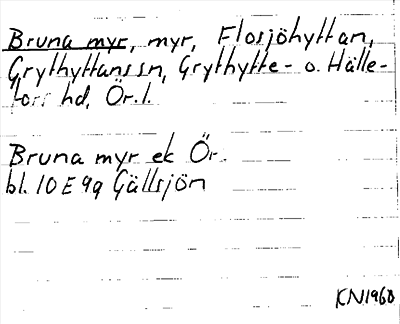 Bruna myr, myr, Flosjöhyttan,
Grythyttans sn, Grythytte- o. Hälle-
fors hd, Ör. l.
Bruna myr ek Ör.
bl. 10 E 9g Gällsjön
KN1960